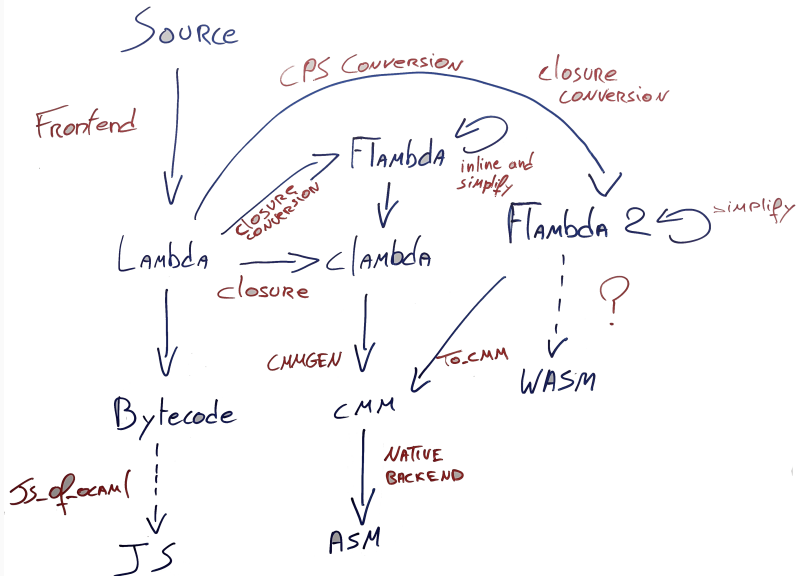 Source
CPS Conversion
closure
conversion
Frontend
Flambda
inline and
simplify
closure
conversion
Flambda 2
simplify
Lambda
closure
Clambda
?
CMMGEN
To_CMM
WASM
Bytecode
CMM
Native
Backend
JS_of_ocaml
JS
ASM